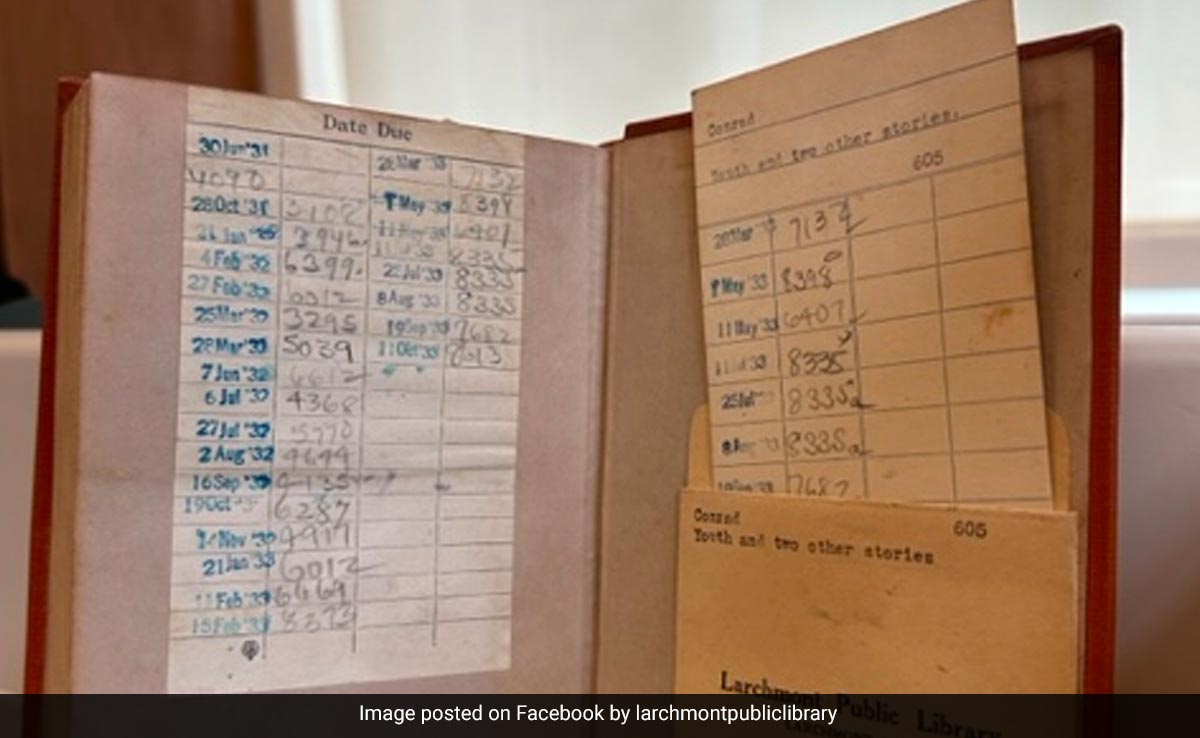 Date Due
30 Jun '31
4090
28 Oct '31 5102
21 Jan 3946
4 Feb '32 6399
27 Feb '32
25 Mar '32 3295
28 Mar '32 5039
7 Jun '32 6612
6 Jul '32 4368
27 Jul '32 5770
2 Aug '32 9699
16 Sep '32
19 Oct 6287
14 Nov '32
21 Jan '33 6012
11 Feb '33 6469
15 Feb '33 8373
28 Mar '33 7132
May '33 8398
11 May '33
8335
25 Jul '33 8335
8 Aug '33 8335
19 Sep '33 7682
11 Oct '33
Conrad
Youth and two other stories.
605
28 Mar 7132
May '33 8398
11 May '33 6407
8335
25 Jul 8335a
8 Aug '33 8335a
7682
Conrad 605
Youth and two other stories
Larchmont Public Library
LARCHMONT
Image posted on Facebook by larchmontpubliclibrary